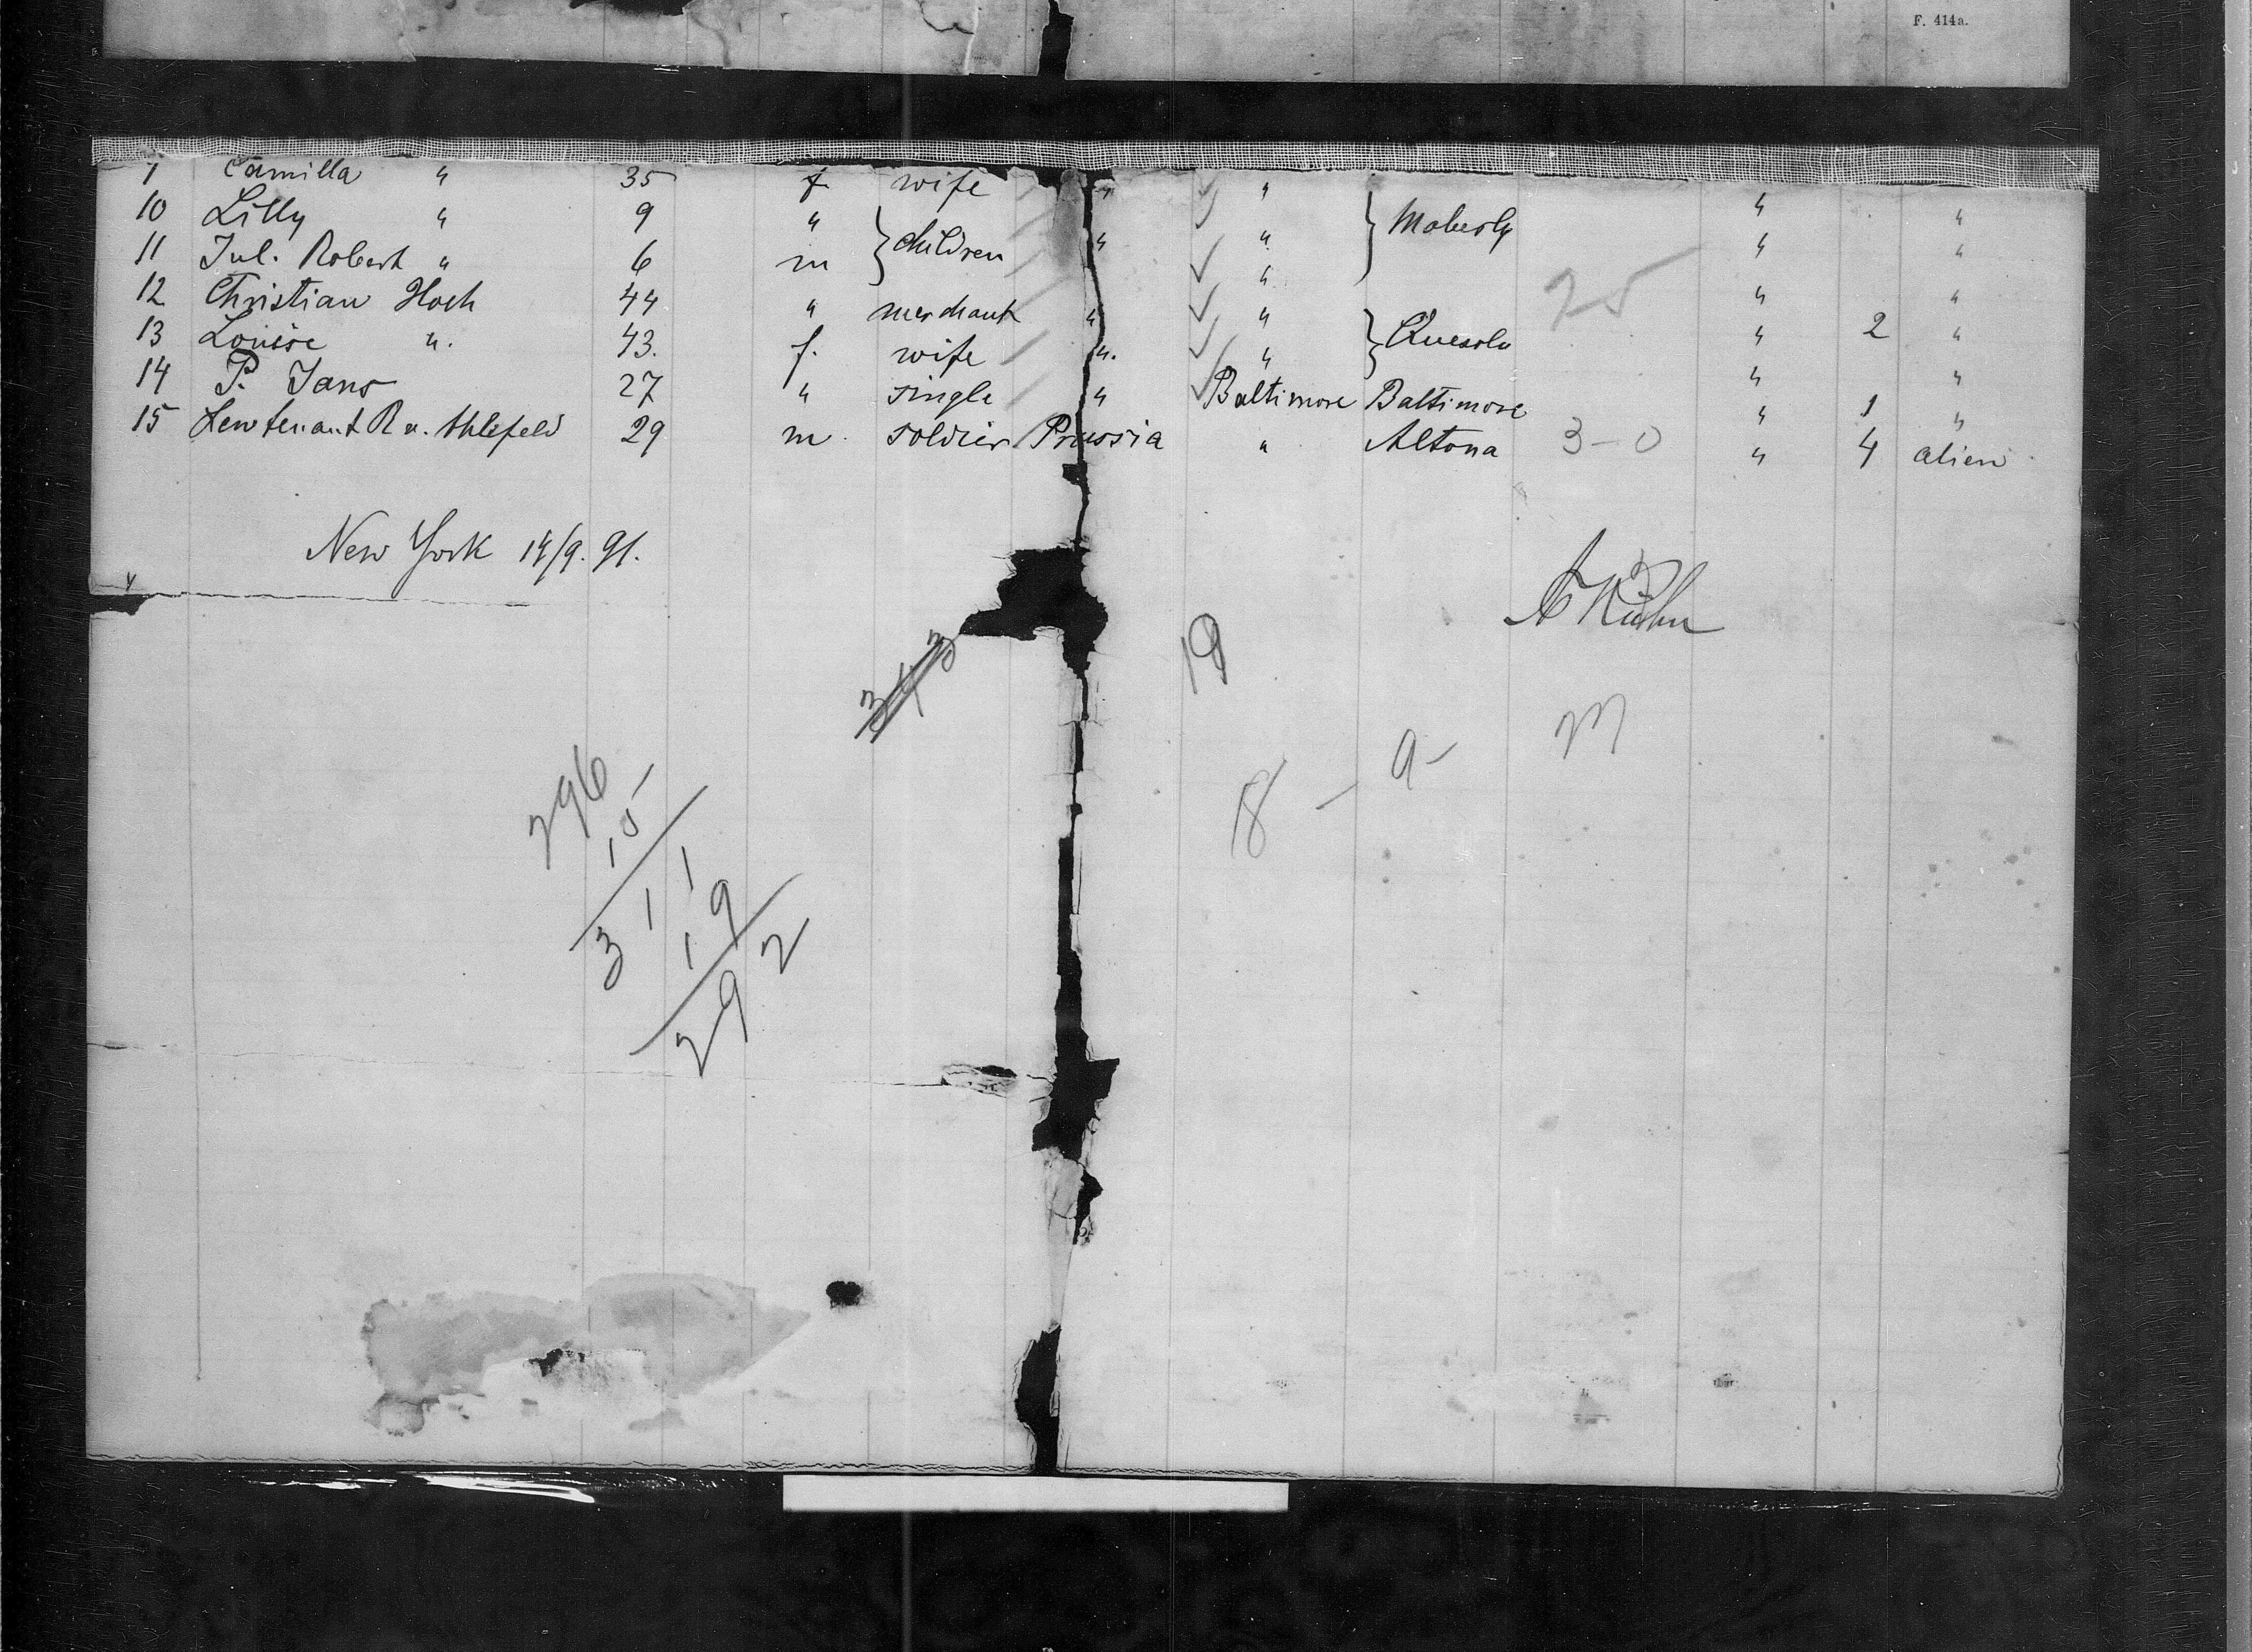 F. 414a.
Camilla " 35 f wife " " " "
10 Lilly " 9 " children " " Moberly " "
11 Jul. Robert " 6 m " " "
12 Christian Hoch 44 " merchant " " " "
13 Louise ". 43. f. wife ". " " 2 "
14 P. Jans 27 " single " Baltimore Baltimore " 1 "
15 Leutenant R v. Ahlefeld 29 m. soldier Prussia " Altona 3-0 " 4 alien
25
New York 14/9. 91.
A Kühn
343
19
296
15
311
19
292
8 - 9 - M